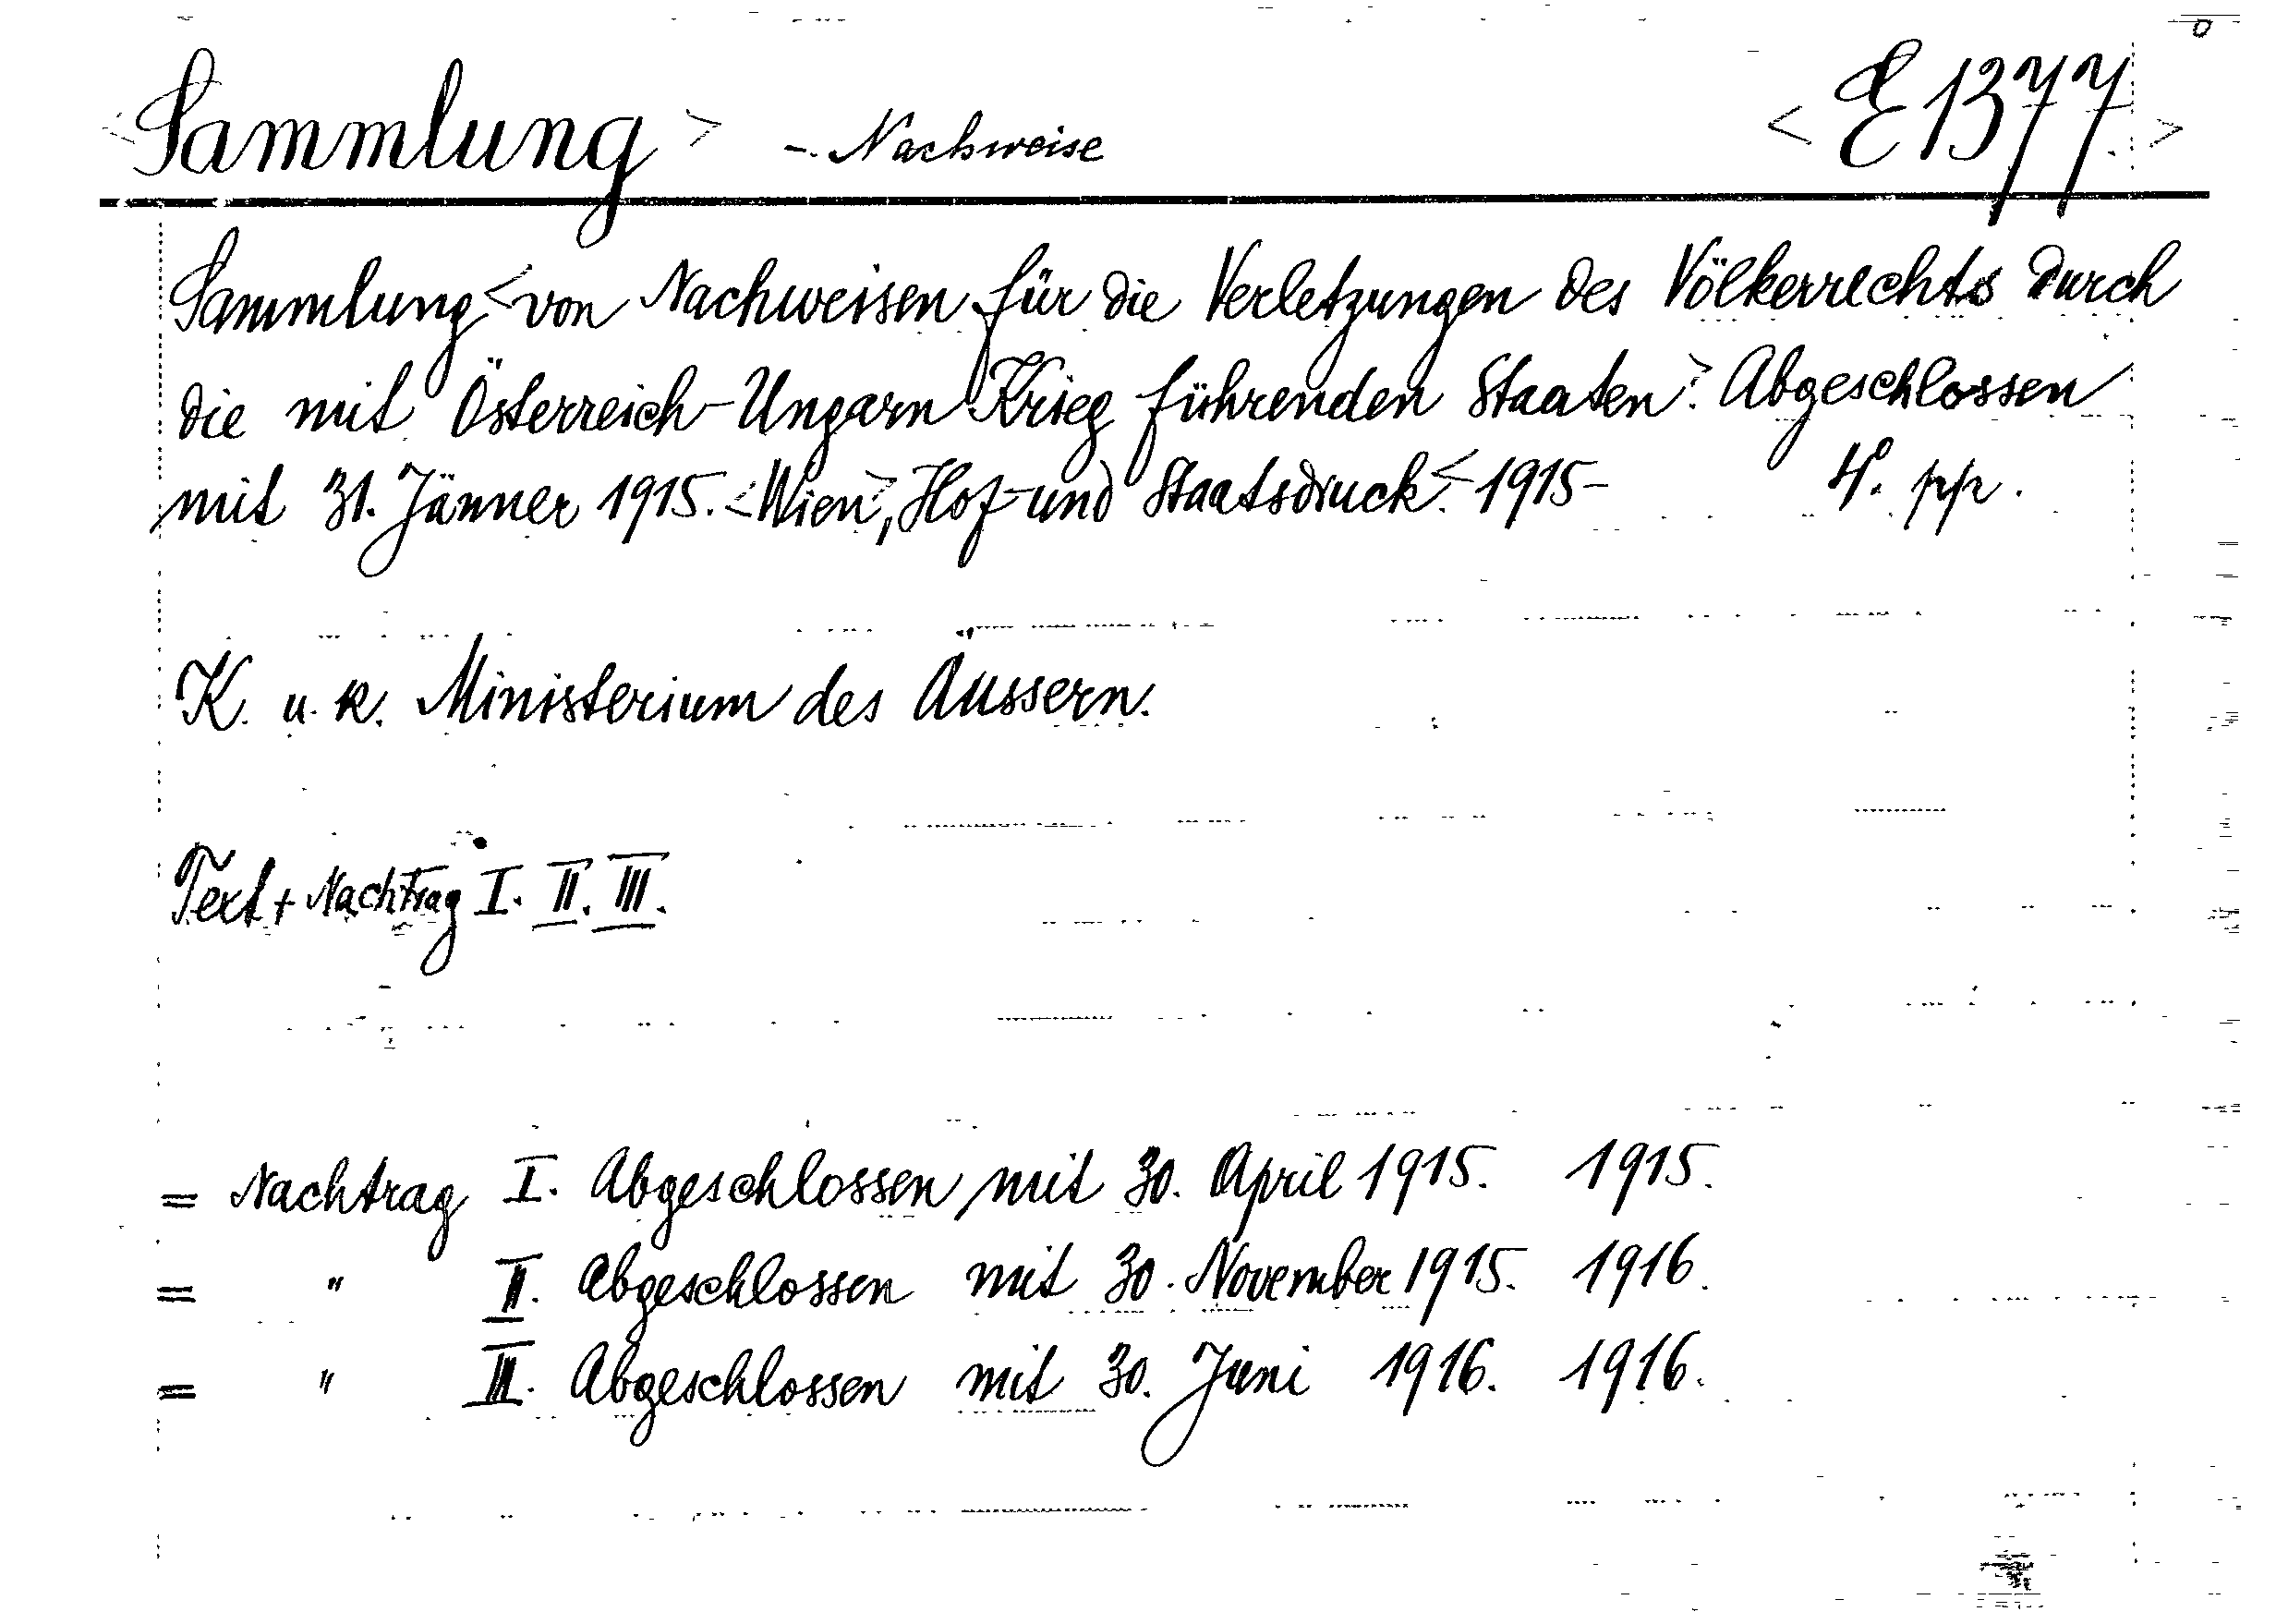 <Sammlung> - Nachweise <E1377.>
Sammlung <von Nachweisen für die Verletzungen des Völkerrechts durch
die mit Österreich-Ungarn Krieg führenden Staaten>. Abgeschlossen
mit 31. Jänner 1915. <Wien>, Hof- und Staatsdruck. <1915- 4°. pp.
K. u. k. Ministerium des Äussern.
Text + Nachtrag I. II. III.
= Nachtrag I. Abgeschlossen mit 30. April 1915. 1915.
= " II. Abgeschlossen mit 30. November 1915. 1916.
= " III. Abgeschlossen mit 30. Juni 1916. 1916.